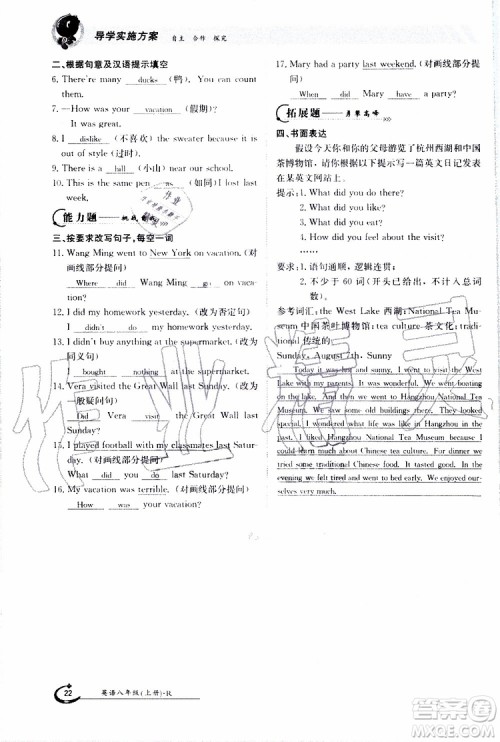 导学实施方案 自主 合作 探究
二、根据句意及汉语提示填空
6. There're many ducks (鸭). You can count
them.
7. —How was your vacation (假期)?
It was great.
8. I dislike (不喜欢) the sweater because it is
out of style (过时).
9. There is a hill (小山) near our school.
10. This is the same pen as (如同) I lost last
week.
能力题
三、按要求改写句子,每空一词
11. Wang Ming went to New York on vacation.
(对画线部分提问)
Where did Wang Ming go on
vacation?
12. I did my homework yesterday. (改为否定句)
I didn't do my homework yesterday.
13. I didn't buy anything at the supermarket. (改为
同义句)
I bought nothing at the supermarket.
14. Vera visited the Great Wall last Sunday. (改为
一般疑问句)
Did Vera visit the Great Wall last
Sunday?
15. I played football with my classmates last Satur-
day. (对画线部分提问)
What did you do last Saturday?
16. My vacation was terrible. (对画线部分提问)
How was your vacation?
17. Mary had a party last weekend. (对画线部分提
问)
When did Mary have a party?
拓展题 月攀高峰
四、书面表达
假设今天你和你的父母游览了杭州西湖和中国
茶博物馆,请根据以下提示写一篇英文日记发表
在某英文网站上。
提示:1. What did you do there?
2. What did you eat?
3. How did you feel about the visit?
……
要求:1. 语句通顺,逻辑连贯;
2. 不少于 60 词(开头已给出,不计入总词
数)。
参考词汇:the West Lake 西湖;National Tea Mu-
seum 中国茶叶博物馆;tea culture 茶文化;tradi-
tional 传统的
Sunday, August 7th, Sunny
Today it was hot and sunny. I went to the West
Lake with my parents. We went boating on the
lake and then we went to Hangzhou National Tea
Museum. We learned about Chinese tea culture.
some traditional Chinese food. In the
evening we felt tired and went home. We enjoyed our-
selves very much.
22 英语八年级(上册)-R
作业精灵